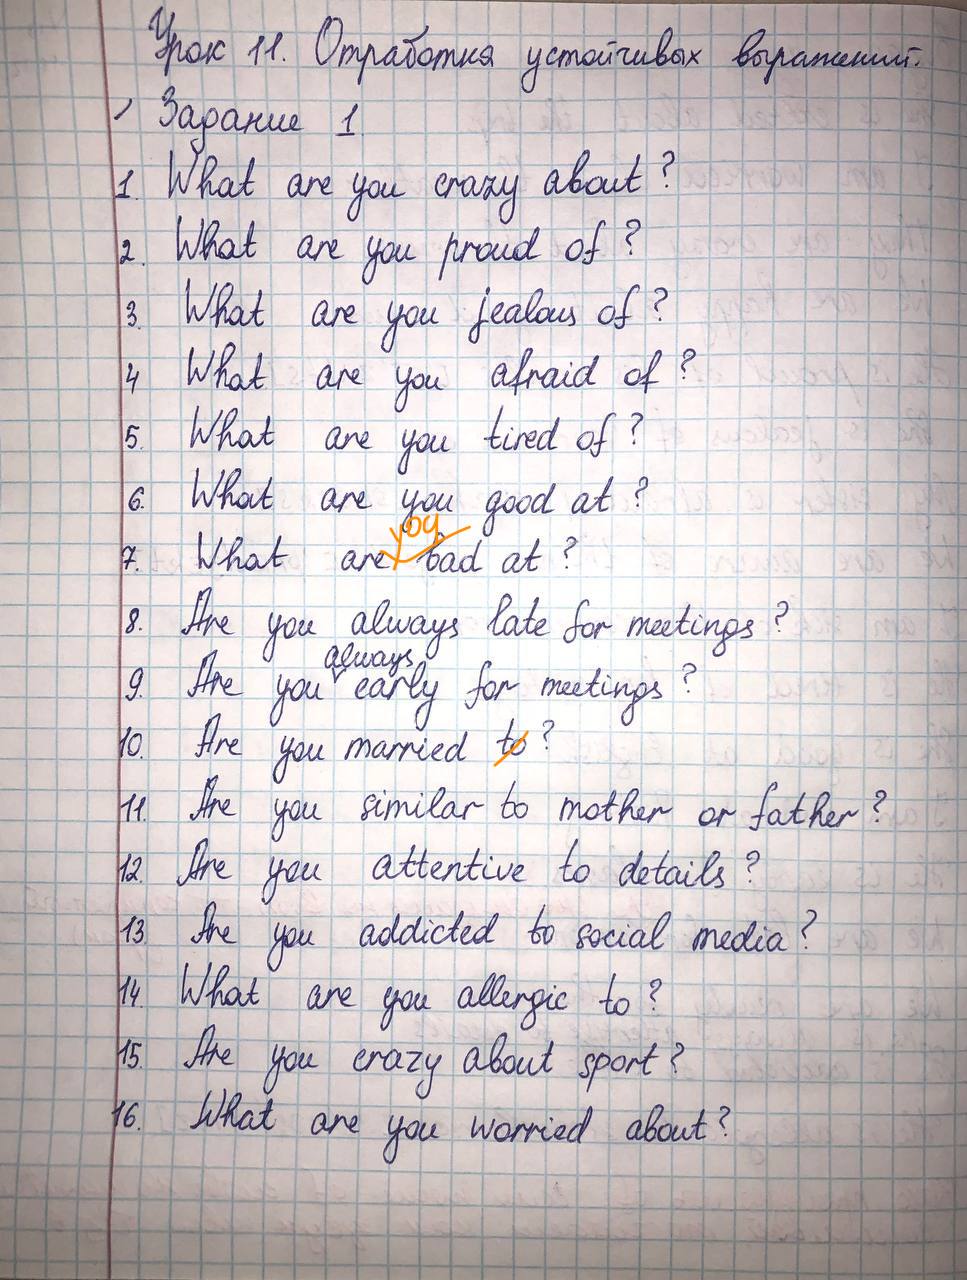 Урок 11. Отработка устойчивых выражений.
Задание 1
1. What are you crazy about?
2. What are you proud of?
3. What are you jealous of?
4 What are you afraid of?
5. What are you tired of?
6. What are you good at?
you
7. What are bad at?
8. Are you always late for meetings?
always
9. Are you early for meetings?
10. Are you married to?
11. Are you similar to mother or father?
12. Are you attentive to details?
13 Are you addicted to social media?
14. What are you allergic to?
15. Are you crazy about sport?
16. What are you worried about?